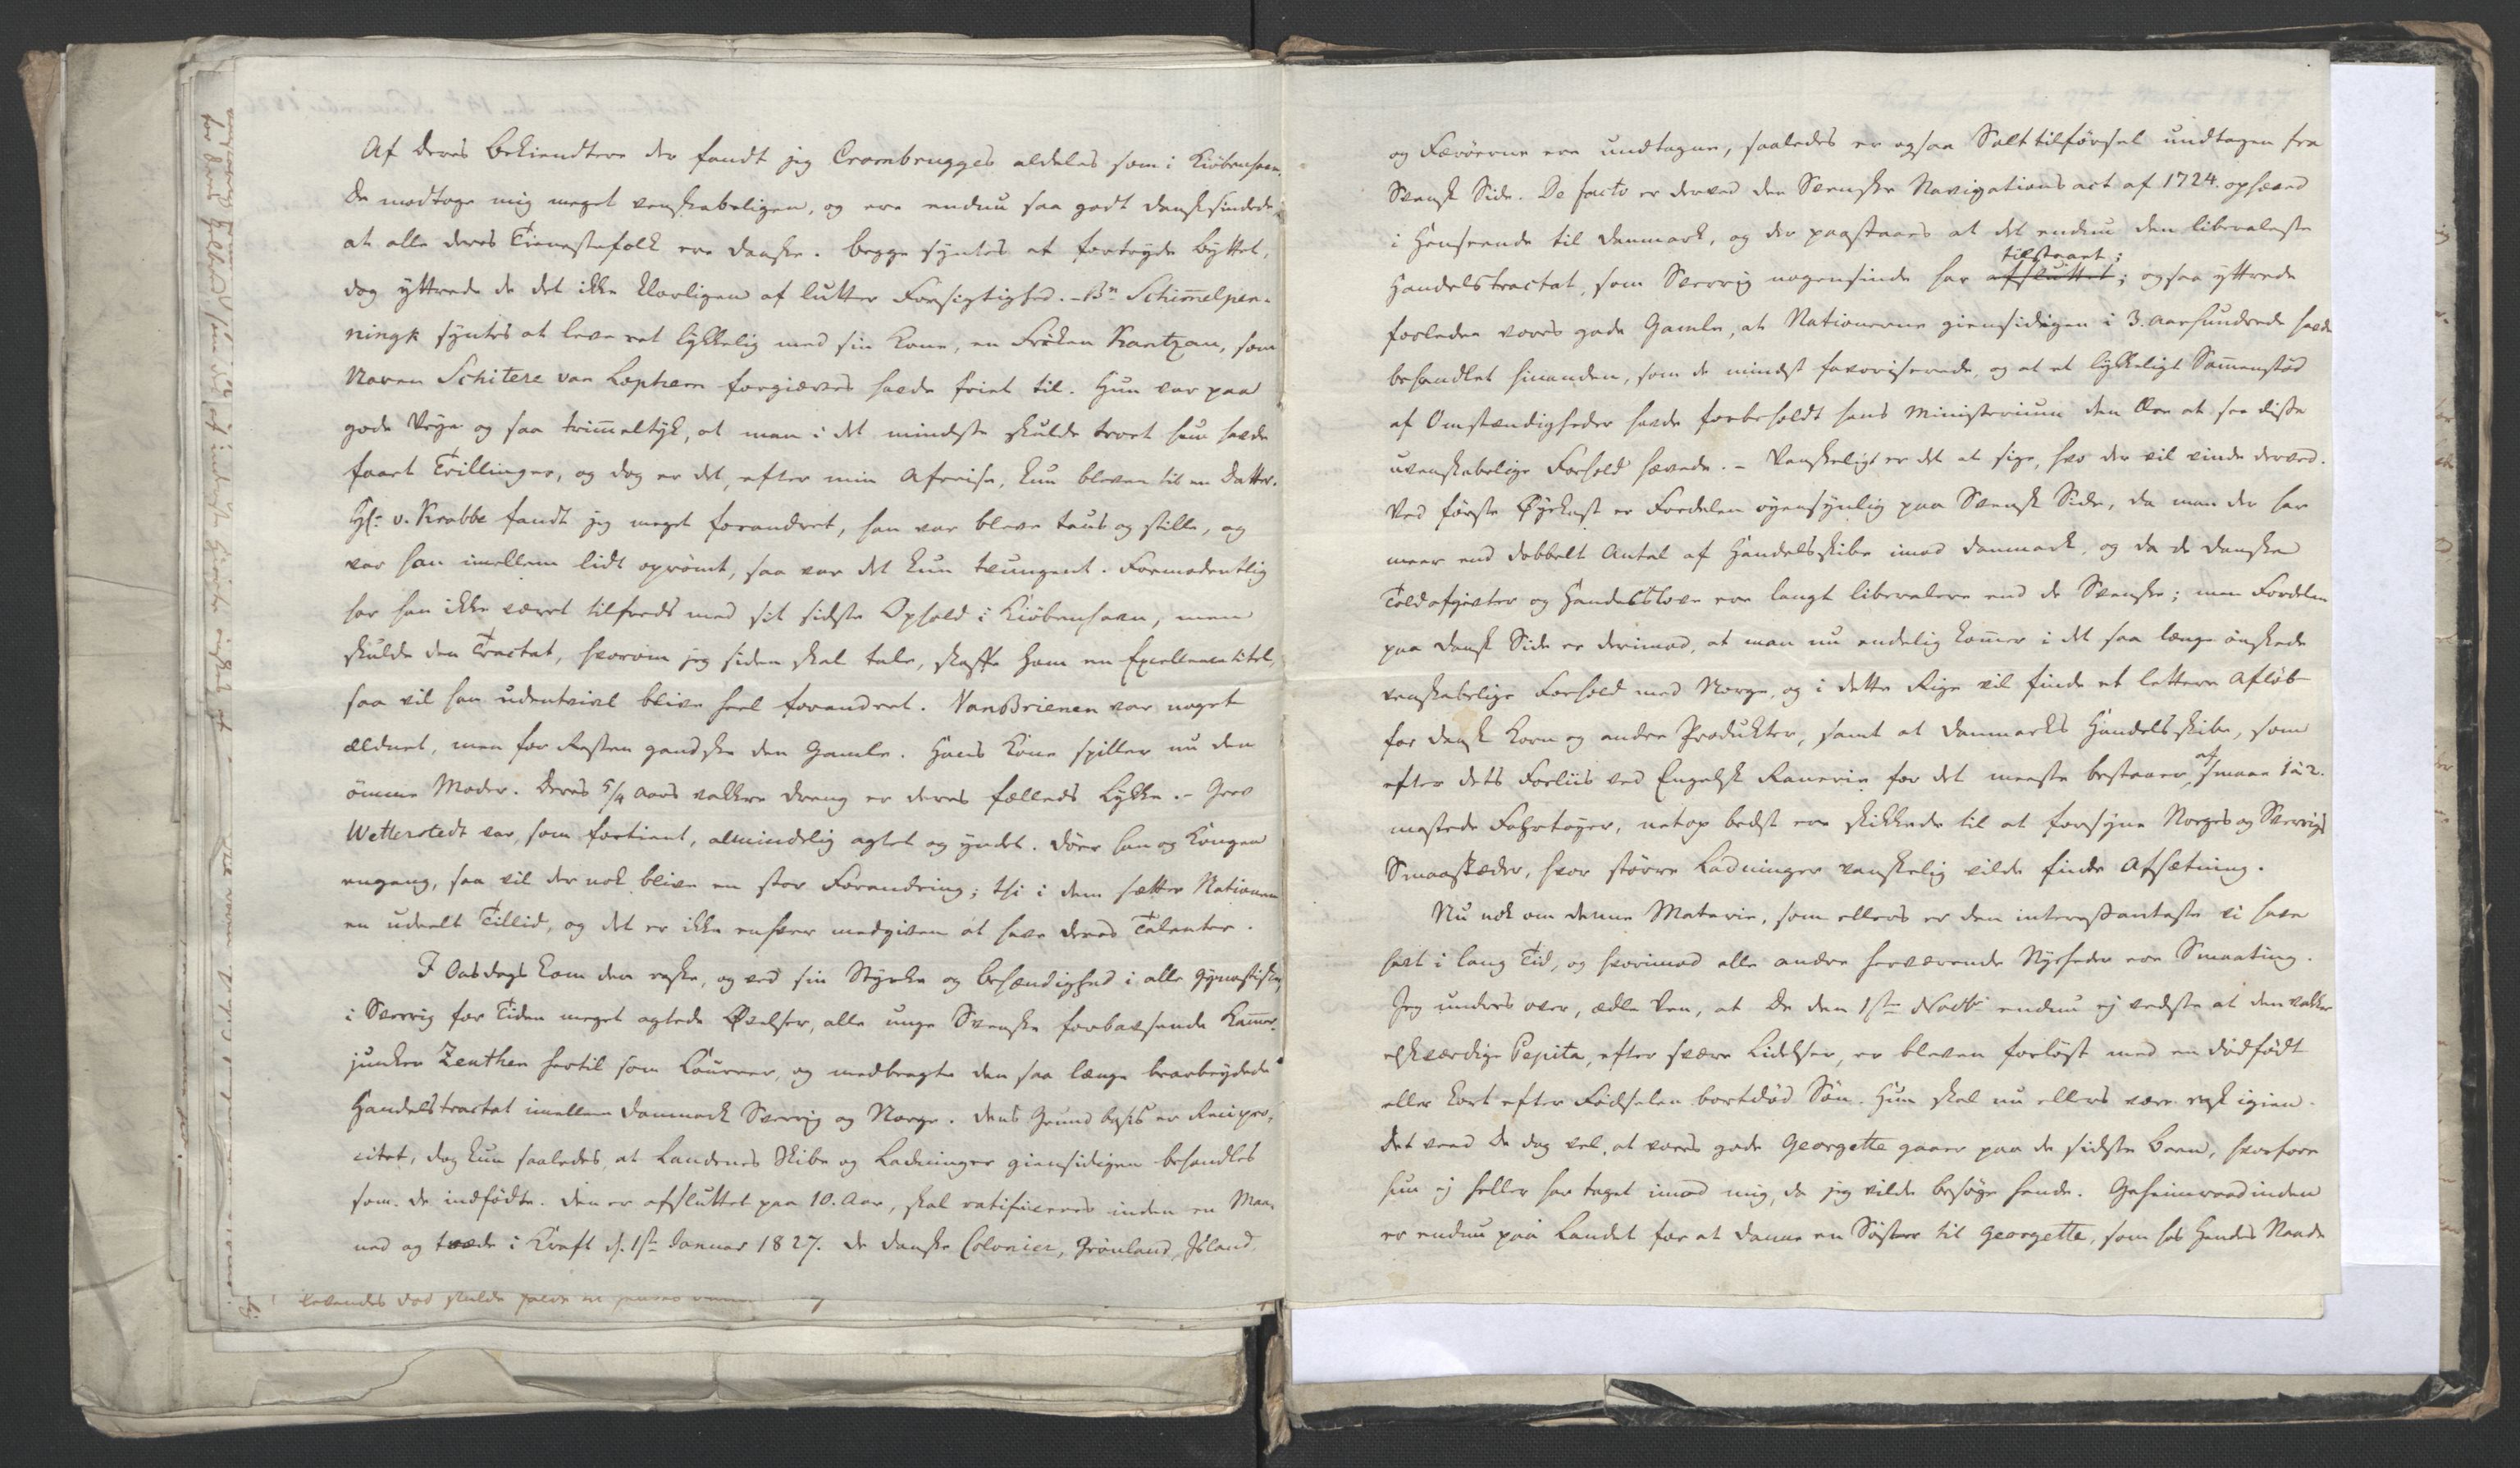 Af Deres Bekiendtere der fandt jeg Crombrugges aldeles som i Kiöbenhavn.
De modtoge mig meget venskabeligen, og ere endnu saa godt dansksindede
at alle deres Tienestefolk ere danske. Begge syntes at fortryde Byttet,
dog yttrede de det ikke klarligen af lutter Forsigtighed. - Bn Schimelpen-
ningk syntes at leve ret lykkelig med sin Kone, en Fröken Rantzau, som
Naren Schitere van Lophem forgiæves havde friet til. Hun var paa
gode Veye og saa trimeltyk, at man i det mindste skulde troet hun havde
faaet Trillinger, og dog er det, efter min Afreise, kun bleven til en Datter.
Hr: v. Krabbe fandt jeg meget forandret, han var bleve taus og stille, og
var han imellem lidt oprömt, saa var det kun tvungent. Formodentlig
har han ikke været tilfreds med sit sidste Ophold i Kiöbenhavn, men
skulde den Tractat, hvorom jeg siden skal tale, skaffe ham en Excellencetitel,
saa vil han udentvivl blive heel forandret. VanBrienen var noget
ældnet, men for Resten gandske den Gamle. Hans Kone spiller nu den
ömme Moder. Deres 5/4 Aars vakkre Dreng er deres fælleds Lykke. - Grev
Wetterstedt var, som fortient, almindelig agtet og yndet. Döer han og Kongen
engang, saa vil der nok blive en stor Forandring; thi i dem sætter Nationen
en udeelt Tillid, og det er ikke enhver medgiven at have deres Talenter.
I Onsdags kom den raske, og ved sin Styrke og Behændighed i alle gymnastiske,
i Sverrig for Tiden meget agtede Övelser, alle unge Svenske forbavsende Kamer-
junker Zeuthen hertil som Courreer, og medbragte den saa længe bearbeydede
Handelstractat imellem Danmark Sverrig og Norge. Dens Grund basis er Recipro-
citet, dog kun saaledes, at Landenes Skibe og Ladninger giensidigen behandles
som de indfödte. Den er afsluttet paa 10. Aar, skal ratificeres inden en Maa-
ned og træde i Kraft d. 1ste Januar 1827. De danske Colonier, Grönland, Island,
og Færöerne ere undtagne, saaledes er ogsaa Salttilförsel undtagen fra
Svensk Side. De facto er derved den Svenske Navigationsact af 1724. ophævet
i Henseende til Danmark, og der paastaaes at det endnu den liberaleste
tilstaaet;
Handelstractat, som Sverrig nogensinde har afsluttet; ogsaa yttrede
forleden vores gode Gamle, at Nationerne giensidigen i 3. Aarhundrede havde
behandlet hinanden, som de mindst favoriserede, og at et lykkeligt Samenstöd
af Omstændigheder havde forbeholdt hans Ministerium den Ære at see disse
uvenskabelige Forhold hævede. - Vanskeligt er det at sige, hvo der vil vinde derved.
Ved förste Öyekast er Fordelen öyensynlig paa Svensk Side, da man der har
meer end dobbelt Antal af Handelsskibe imod Danmark, og da de danske
Toldafgivter og Handelslove ere langt liberalere end de Svenske; men Fordelen
paa Dansk Side er derimod, at man nu endelig komer i det saa længe önskede
venskabelige Forhold med Norge, og i dette Rige vil finde et lettere Aflöb
for Dansk Korn og andre Produkter, samt at Danmarks Handelsskibe, som
efter dets Forliis ved Engelsk Röverie for det meeste bestaaer af smaae 1 à 2.
mastede Fahrtöyer, netop bedst ere skikkede til at forsyne Norges og Sverrigs
Smaastæder, hvor större Ladninger vanskelig vilde finde Afsætning.
Nu nok om denne Materie, som ellers er den interessanteste vi have
havt i lang Tid, og hvorimod alle andre herværende Nyheder ere Smaating.
Jeg undres over, ædle Ven, at De den 1ste Novbr endnu ej vidste at den vakkre
elskværdige Pepita, efter svære Lidelser, er bleven forlöst med en dödfödt
eller kort efter Födselen bortdöd Sön. Hun skal nu ellers være rask igien.
Det veed De dog vel, at vores gode Georgette gaaer paa de sidste Been, hvorfore
hun ej heller har taget imod mig, da jeg vilde besöge hende. Geheimeraadinden
er endnu paa Landet for at danne en Söster til Georgette, som hos Hendes Naade